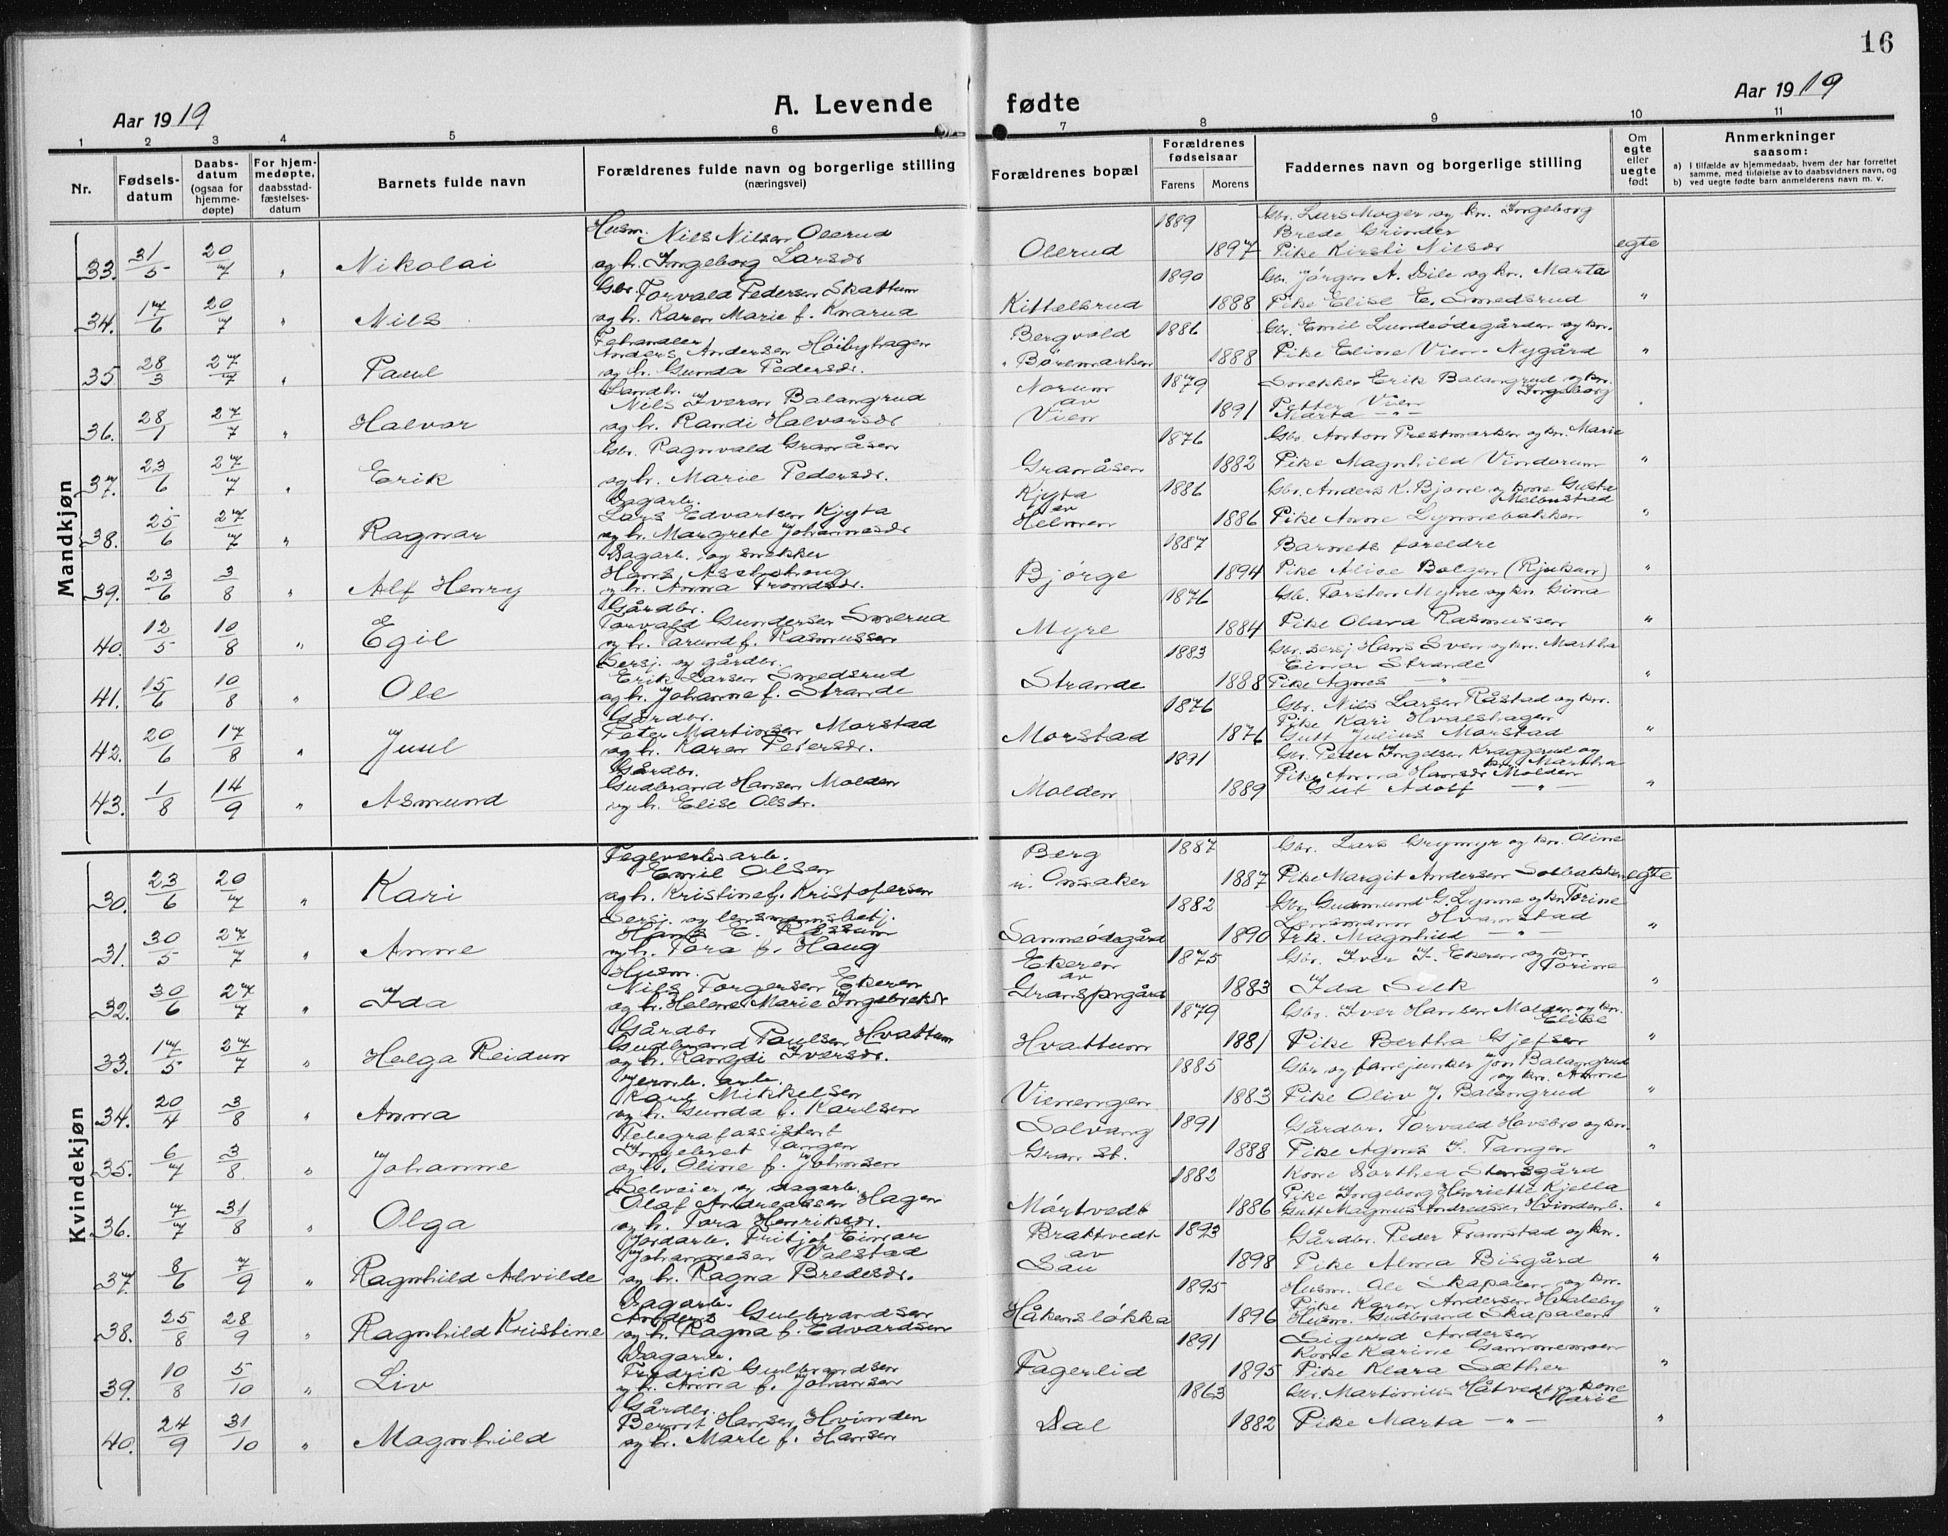 16
Aar 1919
A. Levende fødte
Aar 1919
1 2 3 4 5 6 7 8 9 10 11
Nr.
Fødsels-datum
Daabs-datum (ogsaa for hjemme-døpte)
For hjem-medøpte, daabsstad-fæstelses-datum
Barnets fulde navn
Forældrenes fulde navn og borgerlige stilling (næringsvei)
Forældrenes bopæl
Forældrenes fødselsaar
Farens Morens
Faddernes navn og borgerlige stilling
Om egte eller uegte født
Anmerkninger saasom:
a) I tilfælde av hjemmedaab, hvem der har forrettet samme, med tilføielse av to daabsvidners navn, og
b) ved uegte fødte barn anmelderens navn m. v.
Mandkjøn
33. 31/5 20/7 " Nikolai
Husm. Nils Nilsen Olerud
og h. Ingeborg Larsdr
Olerud 1889 1897
Gbr. Lars Moger og kn. Ingeborg
Brede Grinder
Pike Kirsti Nilsdr egte
34. 17/6 20/7 " Nils
Gbr. Torvald Pedersen Skattum
og h. Karen Marie f. Knarud
Kittelsrud 1890 1888
Gbr. Jørgen A. Dile og kn. Marta
Pike Elise E. Smedsrud "
35 28/3 27/7 " Paul
Fehandler
Anders Andersen Høibyhagen
og h. Gunda Pedersdr.
Bergvold
Børemarken 1886 1888
Gbr. Emil Lundeødegården og kn.
Pike Eline Vien-Nygård "
36. 28/1 27/7 " Halvar
Landbr.
Nils Iversen Balangrud
og h. Randi Halvorsdr
Norum
av
Vien 1879 1891
Snekker Erik Balangrud og kn. Ingeborg
Petter Vien
Marta -"-
37. 23/6 27/7 " Erik
Gbr. Ragnvald Granåsen
og h. Marie Pedersdr.
Granåsen 1876 1882
Gbr. Anton Prestmarken og kn. Marie
Pike Magnhild Vindorum "
38. 25/6 27/7 " Ragnar
Dagarb.
Lars Edvartsen Kjyta
og h. Margrete Johannesdr
Kjyta
av
Helmen 1886 1886
Gbr. Anders K. Bjone og kone Gusta
Melbustad
Pike Anne Lynnebakken "
39. 23/6 3/8 " Alf Henry
Dagarb. og snekker
Hans Aschehoug
og h. Anna Trondsdr.
Bjørge 1887 1894
Barnets foreldre
Pike Alise Bolgen (Rjukan) "
40. 12/5 10/8 " Egil
Gårdbr.
Torvald Gundersen Smerud
og h. Torund f. Rasmussen
Myre 1876 1884
Gb. Torsten Myhre og kn. Gina
Pike Olava Rasmussen "
41. 15/6 10/8 " Ole
Sersj. og gårdbr.
Erik Larsen Smedsrud
og h. Johanne f. Strande
Strande 1883 1888
Gbr. sersj Hans Sven og kn. Martha
Einar Strande
Pike Agnes -"- "
42. 20/6 17/8 " Juul
Gårdbr.
Peter Martinsen Morstad
og h. Karen Petersdr.
Morstad 1876 1876
Gbr. Nils Larsen Råstad og kn.
Pike Kari Hvalshagen
Gutt Julius Morstad "
43. 1/8 14/9 " Asmund
Gårdbr.
Gudbrand Hansen Molden
og h. Elise Olsdr.
Molden 1891 1889
Gbr. Peder Ingelsen Kraggerud og
kn. Martha
Pike Anna Hansdr Molden
Gut Adolf -"- "
Kvindekjøn
30. 23/6 20/7 " Kari
Teglverksarb.
Emil Olsen
og h. Kristine f. Kristofersen
Berg
u. Onsaker 1887 1887
Gbr. Lars Grymyr og kn. Oline
Pike Margit Andersen Solbakken egte
31. 30/5 27/7 " Anne
Sersj. og lensmannsbetj.
Hans E. Råssum
og h. Tora f. Haug
Sanneødegård 1882 1890
Gbr. Gudmund G. Lynne og kn. Torine
Lensmann Hvamstad
Frk. Magnhild -"- "
32. 30/6 27/7 " Ida
Husm.
Nils Torgersen Ekeren
og h. Helene Marie Ingebretsdr
Ekeren
av
Granspngård 1875 1883
Gbr. Iver I. Ekeren og kn.
Torine
Ida Silk "
33. 17/5 27/7 " Helga Reidun
Gårdbr
Gudbrand Paulsen Hvattum
og h. Rangdi Iversdr.
Hvattum 1879 1881
Gbr. Iver Hansen Molden og kn.
Elise
Pike Bertha Gjefsen "
34. 20/4 3/8 " Anna
Jernb. arb.
Karl Mikkelsen
og h. Gunda f. Karlsen
Vienengen 1885 1883
Gbr og fanejunker Jon Balangrud
og kn. Anne
Pike Oliv J. Balangrud "
35. 6/7 3/8 " Johanne
Telegrafassistent
Ingebret Tangen
og h. Oline f. Johnsen
Solvang
Gran st. 1891 1888
Gårdbr. Torvald Hovsbro og kn.
Pike Agnes I. Tangen "
36. 7/7 31/8 " Olga
Selveier og dagarb.
Olaf Andreassen Hagen
og h. Tora Henriksdr.
Mørtvedt 1883 1886
Kone Dorthea Stensgård
Pike Ingeborg Henriette Kjella
Gutt Magnus Andreasser Hvindenb. "
37. 8/6 7/9 " Ragnhild Alvilde
Jordarb. Fritjof Einar
Johannesen Valstad
og h. Ragna Bredesdr.
Brattvedt
av
Sau 1893 1898
Gårdbr. Peder Framstad og kn.
Pike Alma Bisgård "
38. 25/8 28/9 " Ragnhild Kristine
Dagarb.
Anders Gulbrandsen
og h. Ragna f. Edvardsen
Håkensløkka 1895 1896
Husm. Ole Skapalen og kn.
Pike Karen Andersen Hvaleby
Husm. Gudbrand Skapalen "
39. 10/8 5/10 " Liv
Dagarb.
Fredrik Gulbrandsen
og h. Anna f. Johansen
Fagerlid 1891 1895
Sigurd Andersen
Kone Karine Gammemoen
Pike Klara Sæther "
40. 24/9 31/10 " Magnhild
Gårdbr.
Bernt Hansen Hvinden
og h. Marte f. Hansen
Dal 1863 1882
Gbr. Martinius Håtvedt og kone
Marie
Pike Marta -"- "